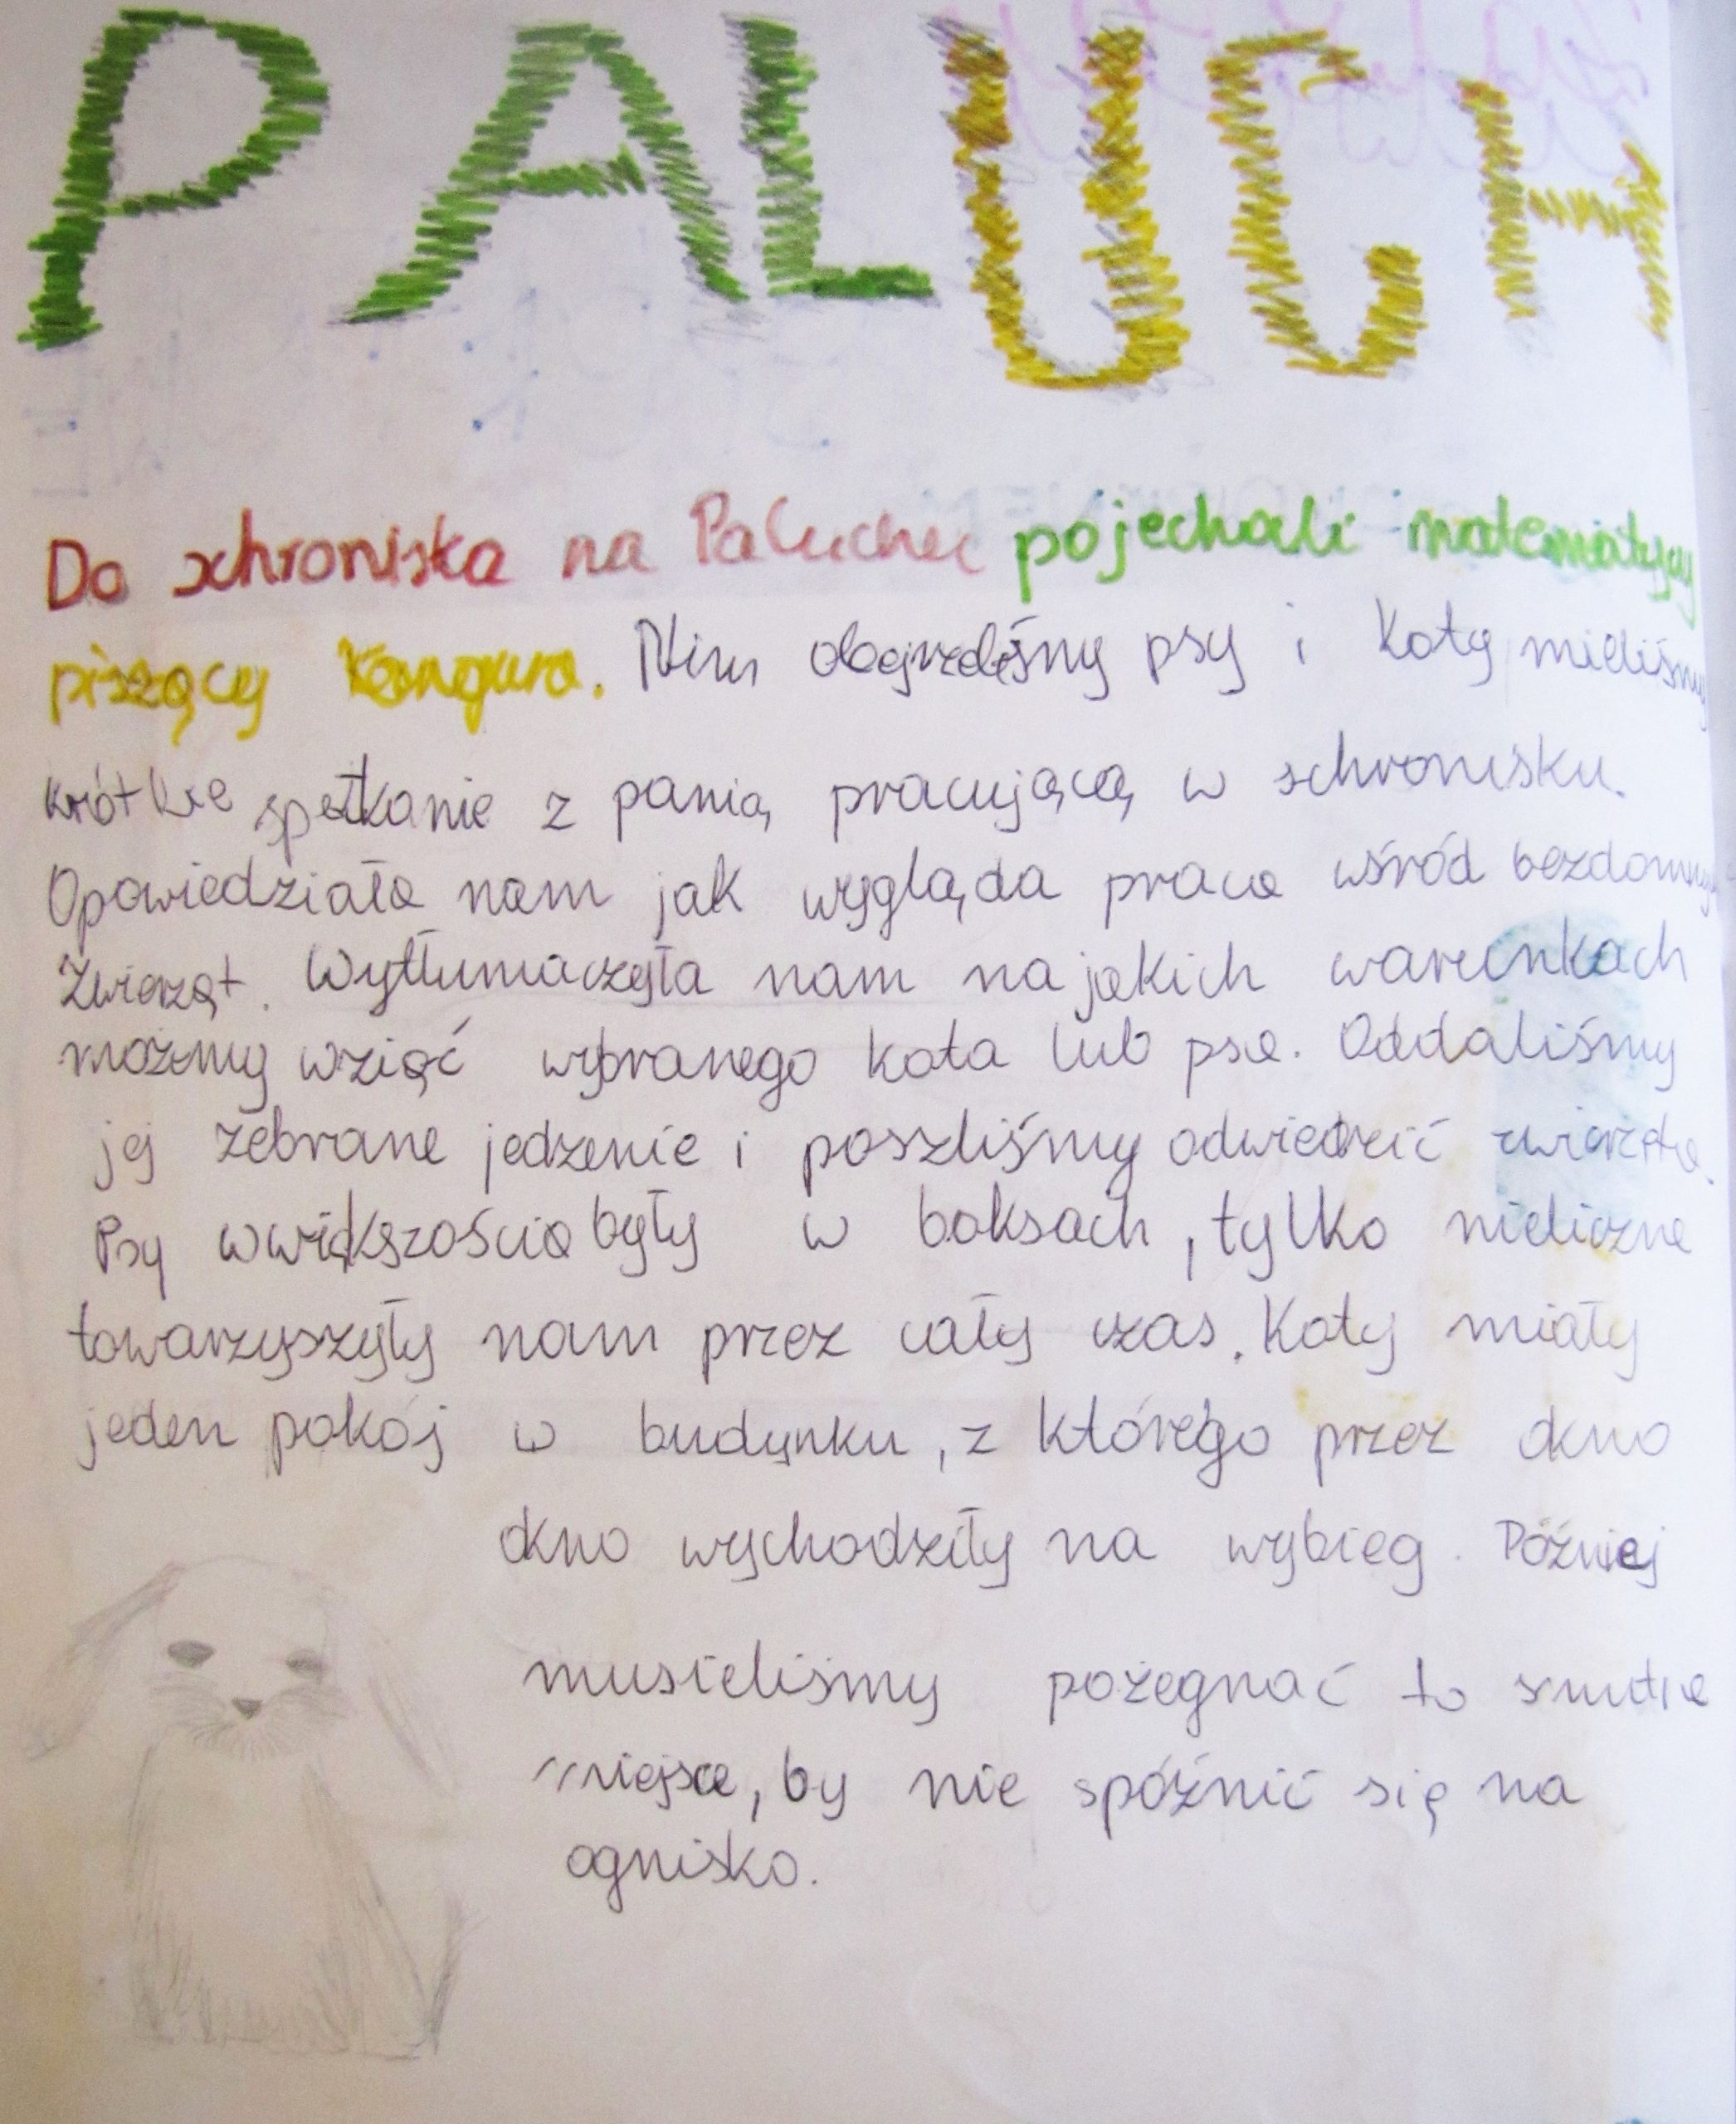 PALUCH
Do schroniska na Paluchu pojechali matematycy
piszący Kangura. Nim obejrzeliśmy psy i koty mieliśmy
krótkie spotkanie z panią pracującą w schronisku.
Opowiedziała nam jak wygląda praca wśród bezdomnych
zwierząt. Wytłumaczyła nam na jakich warunkach
możemy wziąć wybranego kota lub psa. Oddaliśmy
jej zebrane jedzenie i poszliśmy odwiedzić zwierzęta.
Psy w większością były w boksach, tylko nieliczne
towarzyszyły nam przez cały czas. Koty miały
jeden pokój w budynku, z którego przez okno
okno wychodziły na wybieg. Później
musieliśmy pożegnać to smutne
miejsce, by nie spóźnić się na
ognisko.